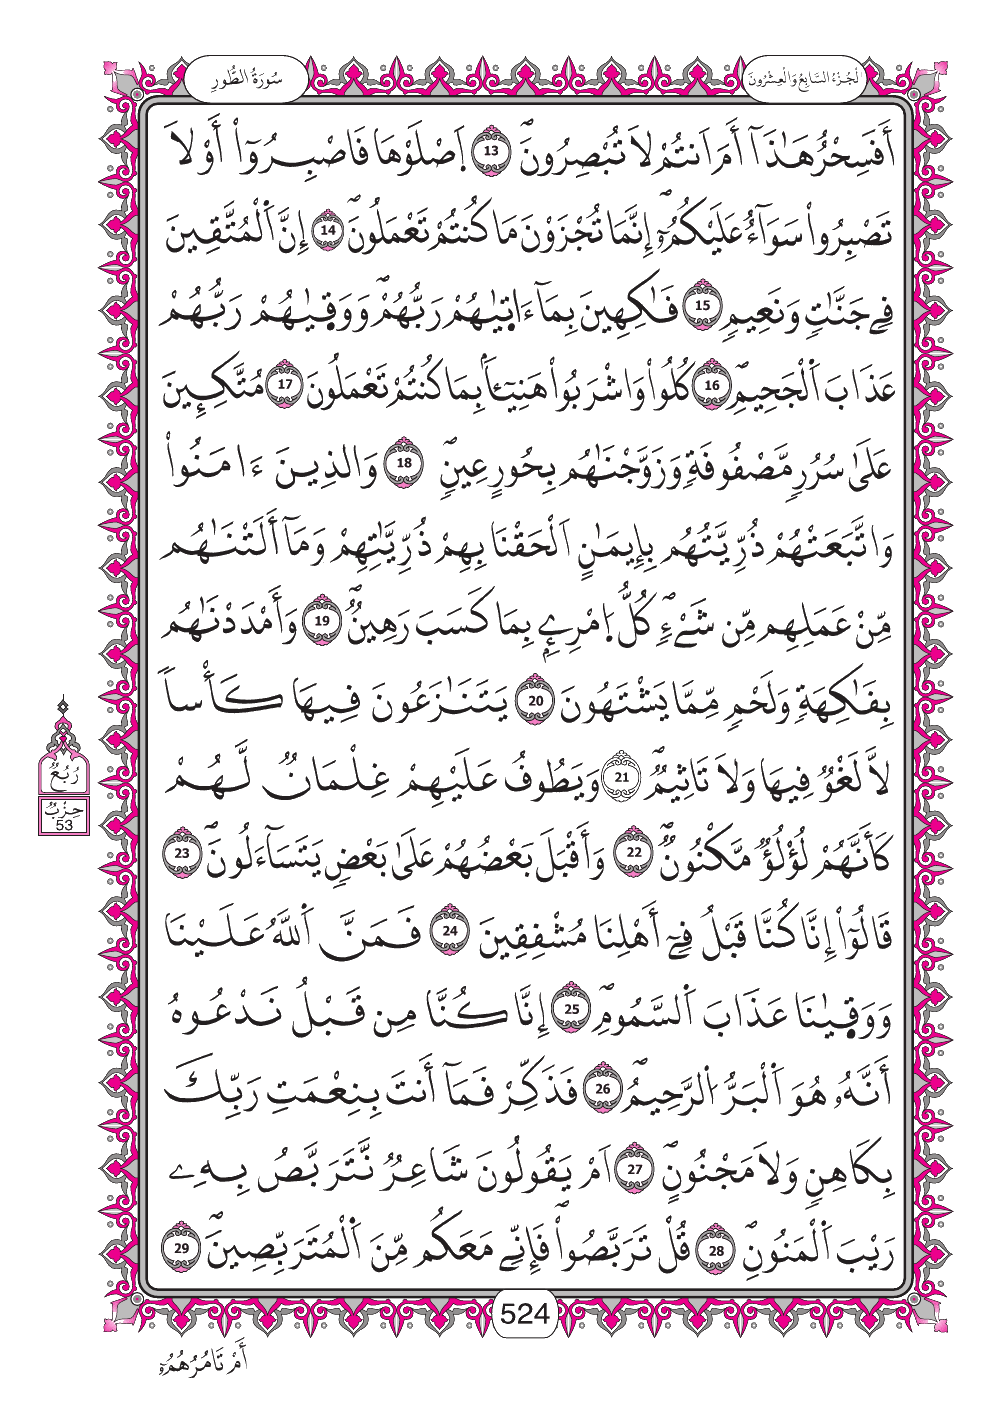 الْجُزْءُ السَّابِعُ وَالْعِشْرُونَ
سُورَةُ الطُّورِ
أَفَسِحْرٌ هَٰذَآ أَمَ اَنتُمْ لَا تُبْصِرُونَۖ 13 اَ۪صْلَوْهَا فَاصْبِرُوٓاْ أَوْ لَا
تَصْبِرُواْ سَوَآءٌ عَلَيْكُمُۥٓۖ إِنَّمَا تُجْزَوْنَ مَا كُنتُمْ تَعْمَلُونَۖ 14 إِنَّ اَ۬لْمُتَّقِينَ
فِے جَنَّٰتٖ وَنَعِيمٖ 15 فَٰكِهِينَ بِمَآ ءَات۪يٰهُمْ رَبُّهُمْۖ وَوَق۪يٰهُمْ رَبُّهُمْ
عَذَابَ اَ۬لْجَحِيمِۖ 16 كُلُواْ وَاشْرَبُواْ هَنِيٓـٔاَۢ بِمَا كُنتُمْ تَعْمَلُونَ 17 مُتَّكِـِٕينَ
عَلَىٰ سُرُرٖ مَّصْفُوفَةٖ وَزَوَّجْنَٰهُم بِحُورٍ عِينٖۖ 18 وَالذِينَ ءَامَنُواْ
وَاتَّبَعَتْهُمْ ذُرِّيَّتُهُم بِإِيمَٰنٍ اَلْحَقْنَا بِهِمْ ذُرِّيَّٰتِهِمْ وَمَآ أَلَتْنَٰهُم
مِّنْ عَمَلِهِم مِّن شَےْءٖۖ كُلُّ اُ۪مْرِےِٕۢ بِمَا كَسَبَ رَهِينٞۖ 19 وَأَمْدَدْنَٰهُم
بِفَٰكِهَةٖ وَلَحْمٖ مِّمَّا يَشْتَهُونَ 20 يَتَنَٰزَعُونَ فِيهَا كَأْساٗ
لَّا لَغْوٞ فِيهَا وَلَا تَاثِيمٞۖ 21 وَيَطُوفُ عَلَيْهِمْ غِلْمَانٞ لَّهُمْ
كَأَنَّهُمْ لُؤْلُؤٞ مَّكْنُونٞۖ 22 وَأَقْبَلَ بَعْضُهُمْ عَلَىٰ بَعْضٖ يَتَسَآءَلُونَۖ 23
قَالُوٓاْ إِنَّا كُنَّا قَبْلُ فِےٓ أَهْلِنَا مُشْفِقِينَ 24 فَمَنَّ اَ۬للَّهُ عَلَيْنَا
وَوَق۪يٰنَا عَذَابَ اَ۬لسَّمُومِۖ 25 إِنَّا كُنَّا مِن قَبْلُ نَدْعُوهُ
أَنَّهُۥ هُوَ اَ۬لْبَرُّ اُ۬لرَّحِيمُۖ 26 فَذَكِّرْ فَمَآ أَنتَ بِنِعْمَتِ رَبِّكَ
بِكَاهِنٖ وَلَا مَجْنُونٍۖ 27 اَمْ يَقُولُونَ شَاعِرٞ نَّتَرَبَّصُ بِهِۦ
رَيْبَ اَ۬لْمَنُونِۖ 28 قُلْ تَرَبَّصُواْۖ فَإِنِّے مَعَكُم مِّنَ اَ۬لْمُتَرَبِّصِينَۖ 29
رُبُعُ
حِزْبٌ
53
524
أَمْ تَامُرُهُمُۥٓ